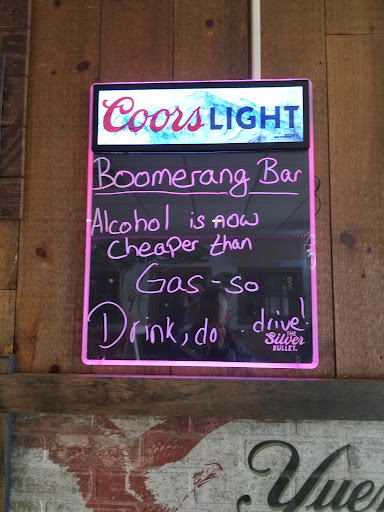 Coors LIGHT
Boomerang Bar
Alcohol is now
cheaper than
Gas - so
Drink, do drive!
THE
Silver
BULLET.
Yue